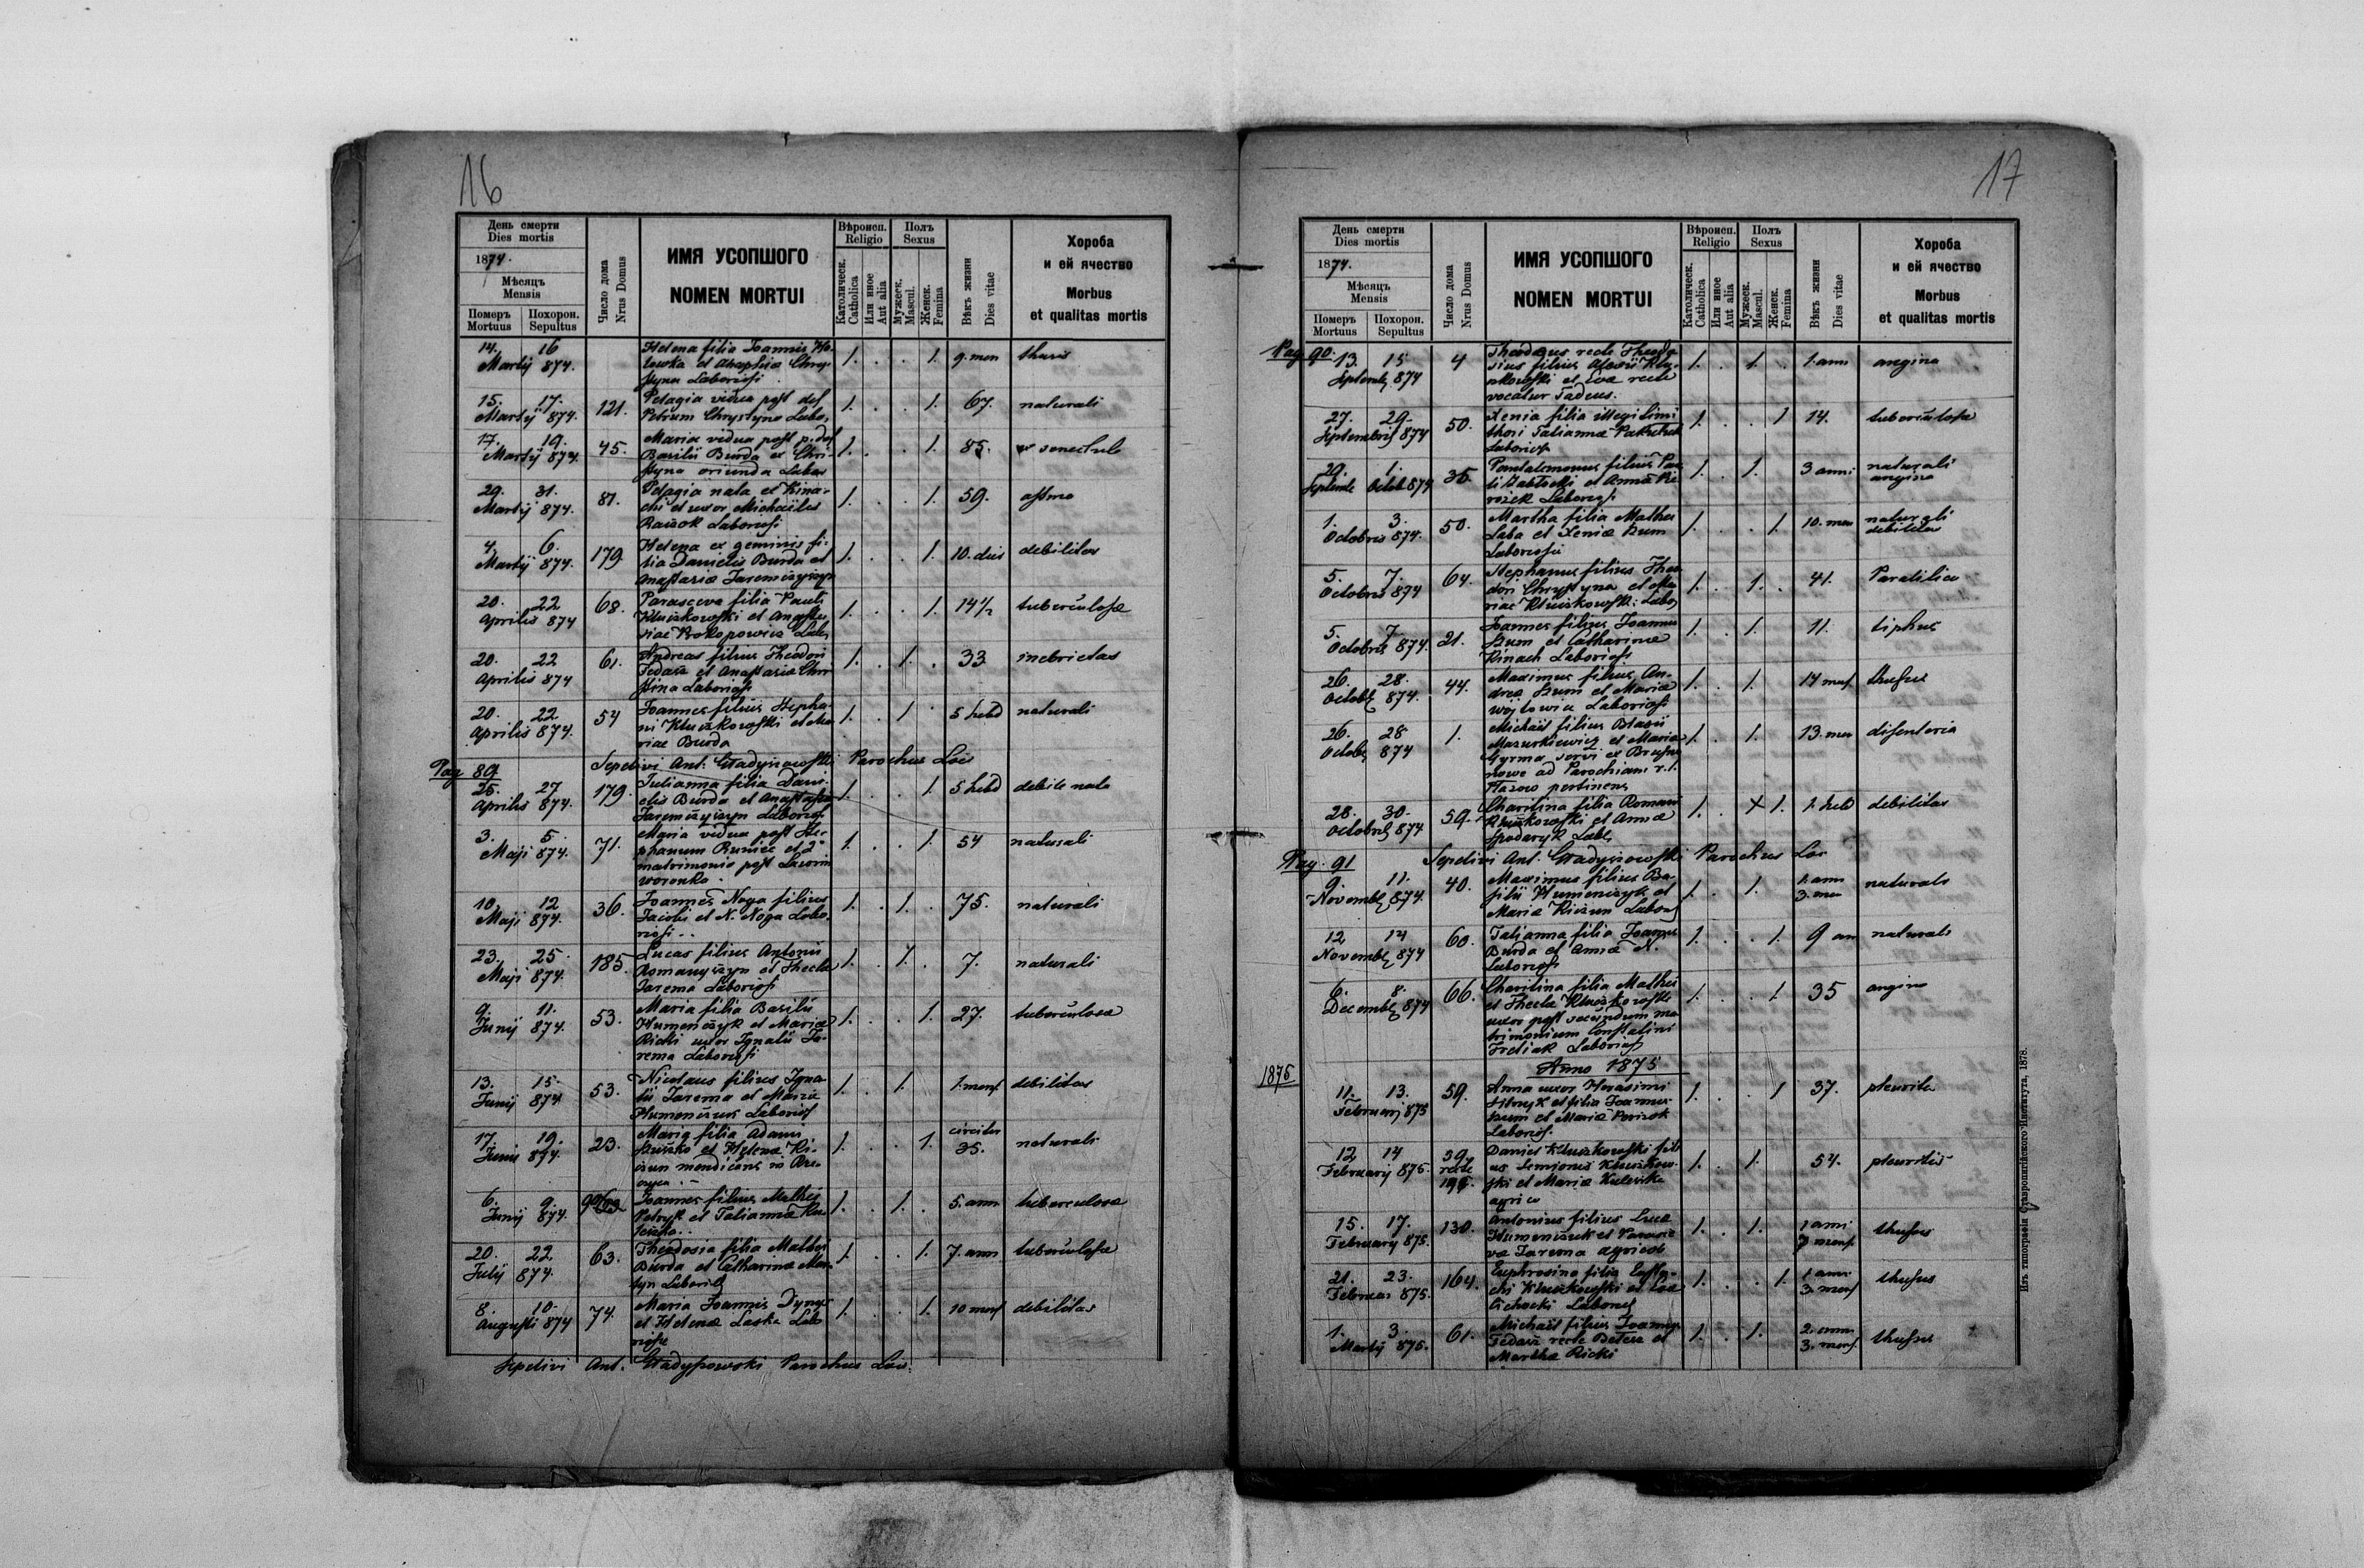 16
День смерти
Dies mortis
1874.
Мѣсяцъ
Mensis
Померъ
Mortuus
Похорон.
Sepultus
Число дома
Nrus Domus
ИМЯ УСОПШОГО
NOMEN MORTUI
Вѣроисп.
Religio
Католическ.
Catholica
Или иное
Aut alia
Полъ
Sexus
Мужеск.
Mascul.
Женск.
Femina
Вѣкъ жизни
Dies vitae
Хороба
и ей ячество
Morbus
et qualitas mortis
14. 16 Helena filia Joannis
Martij 874. 1. . . 1. 9. men
Laboriosi
15. 17. 121. Pelagia vidua post def
Martij 874. Petrum Chrystyna Labo. 1. . . 1. 67. naturali
17. 19. 45. Maria vidua post p. def
Martij 874. Basilii Burda ex Chri- 1. . . 1. 85. senectute
styna oriunda Labor
29. 31. 81. Pelagia nata et Kina-
Martij 874. et uxor Michaelis 1. . . 1. 59. astma
Laboriosi
4. 6. 179. Helena ex geminis fi-
Martij 874. lia Danielis Burda et 1. . . 1. 10. dies debilitas
Anastasiæ Jaremiszyszyn
20. 22 68. Parasceva filia Pauli
Aprilis 874 Kluszkowski et Anasta- 1. . . 1. 14½ tuberculosa
siae Prokopowicz Lab
20. 22 61. Andreas filius Theodori
Aprilis 874 Fedasz et Anastasiæ Chri 1. . 1. . 33 inebrietas
stina Laboriosi
20. 22 54 Joannes filius Stepha-
Aprilis 874. ni Kluszkowski et Ma- 1. . 1 . 5 hebd naturali
riae Burda
Sepelivi Ant. Gladyszowski Parochus Loci
Pag 89
25. 27 179. Julianna filia Dani-
Aprilis 874. elis Burda et Anastasiæ 1. . . 1. 5 hebd debile nata
Jaremiszyszyn Laborios
3. 5. 71. Maria vidua post Ste-
Maji 874. phanum et 2° 1. . . 1. 54 naturali
matrimonio post
woronko.
10. 12 36. Joannes Noga filius
Maji 874. Jacobi et N. Noga Labo- 1. . 1. . 75. naturali
riosi . .
23. 25. 185. Lucas filius Antonii
Maji 874. Romanyszyn et Thecla 1. . 1. . 7. naturali
Jarema Laboriosi
9. 11. 53. Maria filia Basilii
Junij 874. Humeniszyk et Mariæ 1. . . 1. 27. tuberculosa
Ricki uxor Ignatii Ja-
rema Laboriosi
13. 15. 53. Nicolaus filius Igna-
Junij 874. tii Jarema et Maria 1. . 1. 1. mens debilitas
Humeniszuk Laborios
17. 19. 23. Maria filia Adami circiter
Junii 874. et Helena Ki- 1. . . 1. 35. naturali
mendicans
6. 9. Joannes filius Mathei
Junij 874. Petryk et Tatianna 1. . 1. . 5. ann tuberculosa
20. 22 63. Theodosia filia Mathei
Julij 874. Burda et Catharinæ 1. . . 1. 7. ann tuberculosa
8. 10. 74. Maria Joannis
Augusti 874 et Helenæ Laska Labo 1. . . 1. 10 mens debilitas
Sepelivi Ant. Gladyszowski Parochus Loci.
17
День смерти
Dies mortis
1874.
Мѣсяцъ
Mensis
Померъ
Mortuus
Похорон.
Sepultus
Число дома
Nrus Domus
ИМЯ УСОПШОГО
NOMEN MORTUI
Вѣроисп.
Religio
Католическ.
Catholica
Или иное
Aut alia
Полъ
Sexus
Мужеск.
Mascul.
Женск.
Femina
Вѣкъ жизни
Dies vitae
Хороба
и ей ячество
Morbus
et qualitas mortis
Pag 90.
13. 15 4 recte Theodo-
Septemb 874 sius filius Alexii Klu- 1. . 1. . 1. anni angina
szkowski et Eva recte
vocatur Tadeus.
27. 29. 50. Xenia filia illegitimi
Septembris 874 thori Tatianna 1. . . 1 14. tuberculosa
Laborios
29. 1. 35. Pantalemonus filius Pau
Septemb Octob 874 li et Anna 1. . 1. 3 anni naturali
Laboriosi angina
1. 3. 50. Martha filia Mathei
Octobris 874. Laba et Xeniæ Szum 1. . . 1. 10. men naturali
Laboriosi debilitas
5. 7. 64. Stephanus filius Theo
Octobris 874 dori Chrystyna et Ma- 1. . 1. . 41.
riae Kluszkowski: Labo
5. 7 21. Joannes filius Joannis
Octobris 874. Szum et Catharinæ 1. . 1. 11. tiphus
Kinach Laboriosi
26. 28. 44. Maximus filius An-
Octob 874. drea Szum et Mariæ 1. . 1. 14 mens thusus
Wojtowicz Laboriosi
26. 28 1. Michaël filius Blasii
Octob 874 Mazurkiewicz et Maria 1. . 1. 13. men disenteria
servi ex
ad Parochiam r. l.
pertinens
28. 30. 59. Charitina filia Romani
Octobris 874 Kluszkowski et Annæ 1. . + 1. 1. hebd debilitas
Hpodaryk Lab
Sepelivi Ant. Gladyszowski Parochus Loc
Pag. 91
9. 11. 40. Maximus filius Ba- 1. ann
Novemb 874. silii Humeniszyk et 1. . 1. 3. men naturali
Maria Labor
12 14 60. Tatianna filia Joannis
Novemb 874 Burda et Annæ N. 1. . . 1. 9 an naturali
Laboriosi
6. 8. 66. Charitina filia Mathei
Decemb 874 et Thecla Kluszkowski 1. . . 1. 35 angina
uxor post secundum ma
trimonium Constatini
Fretiak Laborios
Anno 1875
1875
11. 13. 59. Anna uxor Herasimi
Februarij 875 et filia Joannis 1. . . 1 37. pleurite
Szum et Maria
Laborios.
12 14 59. Daniel Kluszkowski fili
Februarij 875. recte us Simionis Kluszkow- 1. . 1. 54. pleuritis
195. ski et Mariæ
agrico
15. 17. 130. Antonius filius Lucæ 1 anni
Februarij 875. Humeniszuk et Parasce 1. . 1. 7 mens. thusus
va Jarema agricol
21. 23. 164. Euphrosina filia Eusta- 1 anni
Februar 875. chi Kluszkowski et Eva 1. . . 1. 3. mens thusus
Cichocki Laborios
1. 3. 61. Michaël filius Joannis 2. anni
Martij 875. Fedasz recte et 1. . 1. 3. mens. thusus
Martha Ricki
Изъ типографіи Ставропигійского Института, 1878.